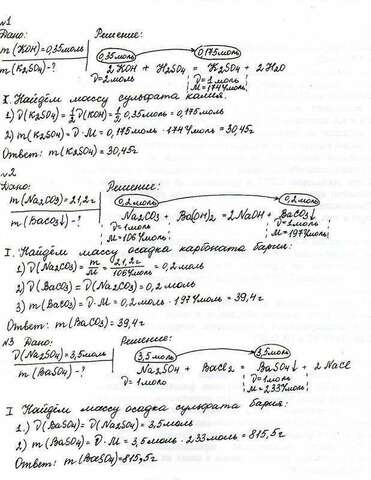 №1
Дано: Решение:
m(KOH)=0,35моль 0,35моль 0,175моль
m(K₂SO₄)-? 2KOH + H₂SO₄ = K₂SO₄ + 2H₂O
ν=2моль ν=1моль
M=174г/моль
I. Найдём массу сульфата калия:
1) ν(K₂SO₄)=½ν(KOH)=½·0,35моль=0,175моль
2) m(K₂SO₄)=ν·M=0,175моль·174г/моль=30,45г
Ответ: m(K₂SO₄)=30,45г
№2
Дано: Решение:
m(Na₂CO₃)=21,2г 0,2моль 0,2моль
m(BaCO₃↓)-? Na₂CO₃ + Ba(OH)₂ = 2NaOH + BaCO₃↓
ν=1моль ν=1моль
M=106г/моль M=197г/моль
I. Найдём массу осадка карбоната бария:
1) ν(Na₂CO₃)=m/M=21,2г/106г/моль=0,2моль
2) ν(BaCO₃)=ν(Na₂CO₃)=0,2моль
3) m(BaCO₃)=ν·M=0,2моль·197г/моль=39,4г
Ответ: m(BaCO₃)=39,4г
№3 Дано: Решение:
ν(Na₂SO₄)=3,5моль 3,5моль 3,5моль
m(BaSO₄)-? Na₂SO₄ + BaCl₂ = BaSO₄↓ + 2NaCl
ν=1моль ν=1моль
M=233г/моль
I Найдём массу осадка сульфата бария:
1.) ν(BaSO₄)=ν(Na₂SO₄)=3,5моль
2) m(BaSO₄)=ν·M=3,5моль·233моль=815,5г
Ответ: m(BaSO₄)=815,5г